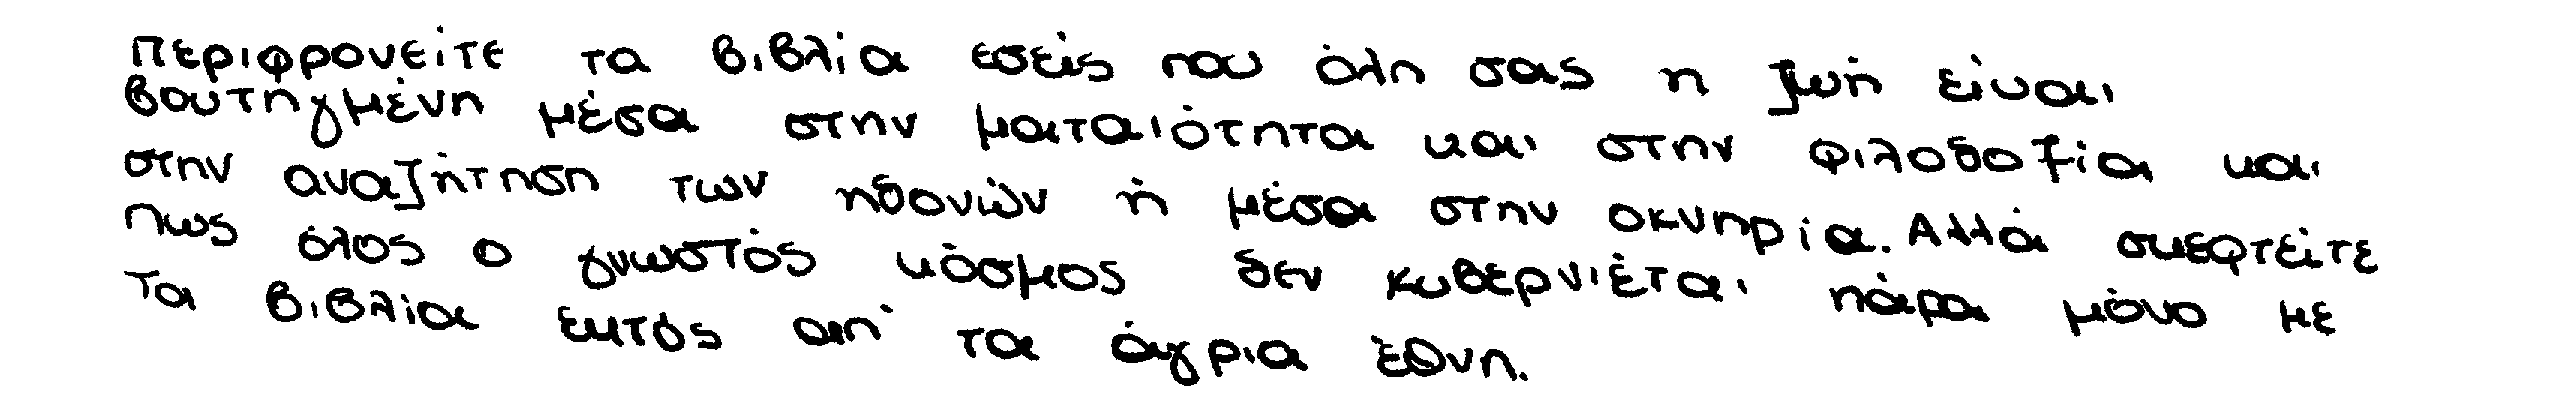 Περιφρονείτε τα βιβλία εσείς που όλη σας η ζωή είναι
βουτηγμένη μέσα στην ματαιότητα και στην φιλοδοξία και
στην αναζήτηση των ηδονών ή μέσα στην οκνηρία. Αλλά σκεφτείτε
πως όλος ο γνωστός κόσμος δεν κυβερνιέται πάρα μόνο με
τα βιβλία εκτός απ' τα άγρια έθνη.